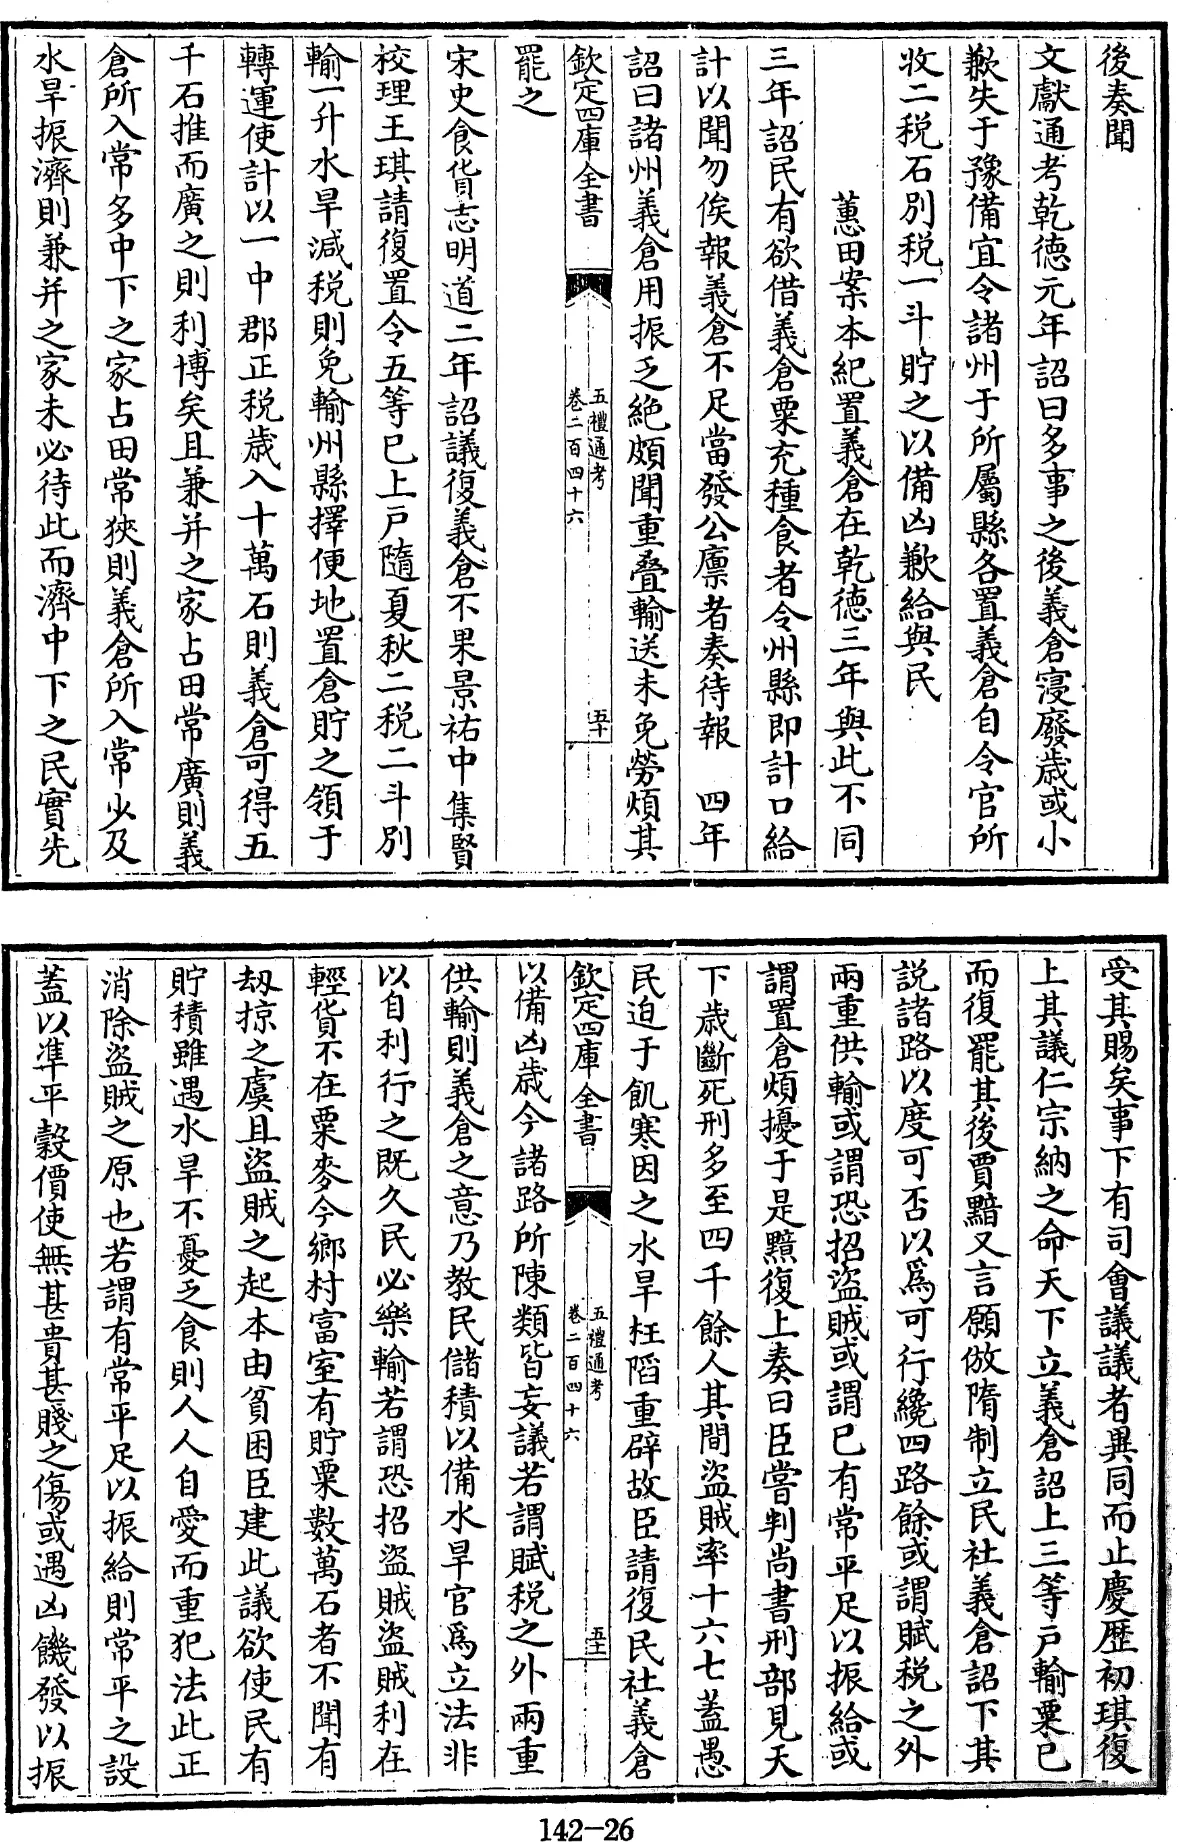 後奏聞
文獻通考乾德元年詔曰多事之後義倉寖廢歲或小
歉失于豫備宜令諸州于所屬縣各置義倉自今官所
收二稅石別稅一斗貯之以備凶歉給與民
蕙田案本紀置義倉在乾德三年與此不同
三年詔民有欲借義倉粟充種食者令州縣即計口給
計以聞勿俟報義倉不足當發公廪者奏待報 四年
詔曰諸州義倉用振乏絶頗聞重疊輸送未免勞煩其
欽定四庫全書
五禮通考
卷二百四十六
五十
罷之
宋史食貨志明道二年詔議復義倉不果景祐中集賢
校理王琪請復置令五等已上戸隨夏秋二稅二斗別
輸一升水旱減稅則免輸州縣擇便地置倉貯之領于
轉運使計以一中郡正稅歲入十萬石則義倉可得五
千石推而廣之則利博矣且兼并之家占田常廣則義
倉所入常多中下之家占田常狹則義倉所入常少及
水旱振濟則兼并之家未必待此而濟中下之民實先
受其賜矣事下有司會議議者異同而止慶歴初琪復
上其議仁宗納之命天下立義倉詔上三等戸輸粟已
而復罷其後賈黯又言願倣隋制立民社義倉詔下其
說諸路以度可否以爲可行纔四路餘或謂賦稅之外
兩重供輸或謂恐招盜賊或謂已有常平足以振給或
謂置倉煩擾于是黯復上奏曰臣嘗判尚書刑部見天
下歲斷死刑多至四千餘人其間盜賊率十六七蓋愚
民迫于飢寒因之水旱枉陷重辟故臣請復民社義倉
欽定四庫全書
五禮通考
卷二百四十六
五十一
以備凶歲今諸路所陳類皆妄議若謂賦稅之外兩重
供輸則義倉之意乃教民儲積以備水旱官爲立法非
以自利行之既久民必樂輸若謂恐招盜賊盜賊利在
輕貨不在粟麥今鄉村富室有貯粟數萬石者不聞有
刼掠之虞且盜賊之起本由貧困臣建此議欲使民有
貯積雖遇水旱不憂乏食則人人自愛而重犯法此正
消除盜賊之原也若謂有常平足以振給則常平之設
蓋以凖平穀價使無甚貴甚賤之傷或遇凶饑發以振
142-26